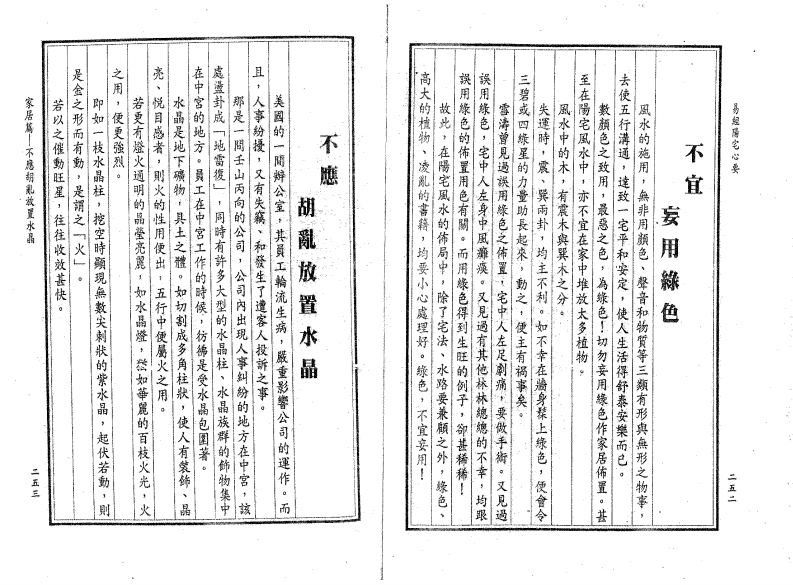 易經陽宅心要
不宜妄用綠色
風水的施用，無非用顏色、聲音和物質等三類有形與無形之物事，
去使五行溝通，達致一宅平和安定，使人生活得舒泰安樂而已。
數顏色之致用，最惡之色，為綠色！切勿妄用綠色作家居佈置。甚
至在陽宅風水中，亦不宜在家中堆放太多植物。
風水中的木，有震木與巽木之分。
失運時，震、巽兩卦，均主不利。如不幸在牆身髹上綠色，便會令
三碧或四綠星的力量助長起來，動之，便主有禍事矣。
雪濤曾見過誤用綠色之佈置，宅中人左足劇痛，要做手術。又見過
誤用綠色，宅中人左身中風癱瘓。又見過有其他林林總總的不幸，均跟
誤用綠色的佈置用色有關。而用綠色得到生旺的例子，卻甚稀稀！
故此，在陽宅風水的佈局中，除了宅法、水路要兼顧之外，綠色、
高大的植物、凌亂的書籍，均要小心處理好。綠色，不宜妄用！
二五二
不應胡亂放置水晶
美國的一間辦公室，其員工輪流生病，嚴重影響公司的運作。而
且，人事紛擾，又有失竊、和發生了遭客人投訴之事。
那是一間壬山丙向的公司，公司內出現人事糾紛的地方在中宮，該
處盪卦成「地雷復」，同時有許多大型的水晶柱、水晶族群的飾物集中
在中宮的地方。員工在中宮工作的時候，彷彿是受水晶包圍著。
水晶是地下礦物，具土之體。如切割成多角柱狀，使人有裝飾、晶
亮、悅目感者，則火的性用便出，五行中便屬火之用。
若更有燈火通明的晶瑩亮麗，如水晶燈，猶如華麗的百枝火光，火
之用，便更強烈。
即如一枝水晶柱，挖空時顯現無數尖刺狀的紫水晶，起伏若動，則
是金之形而有動，是謂之「火」。
若以之催動旺星，往往收效甚快。
家居篇—不應胡亂放置水晶
二五三